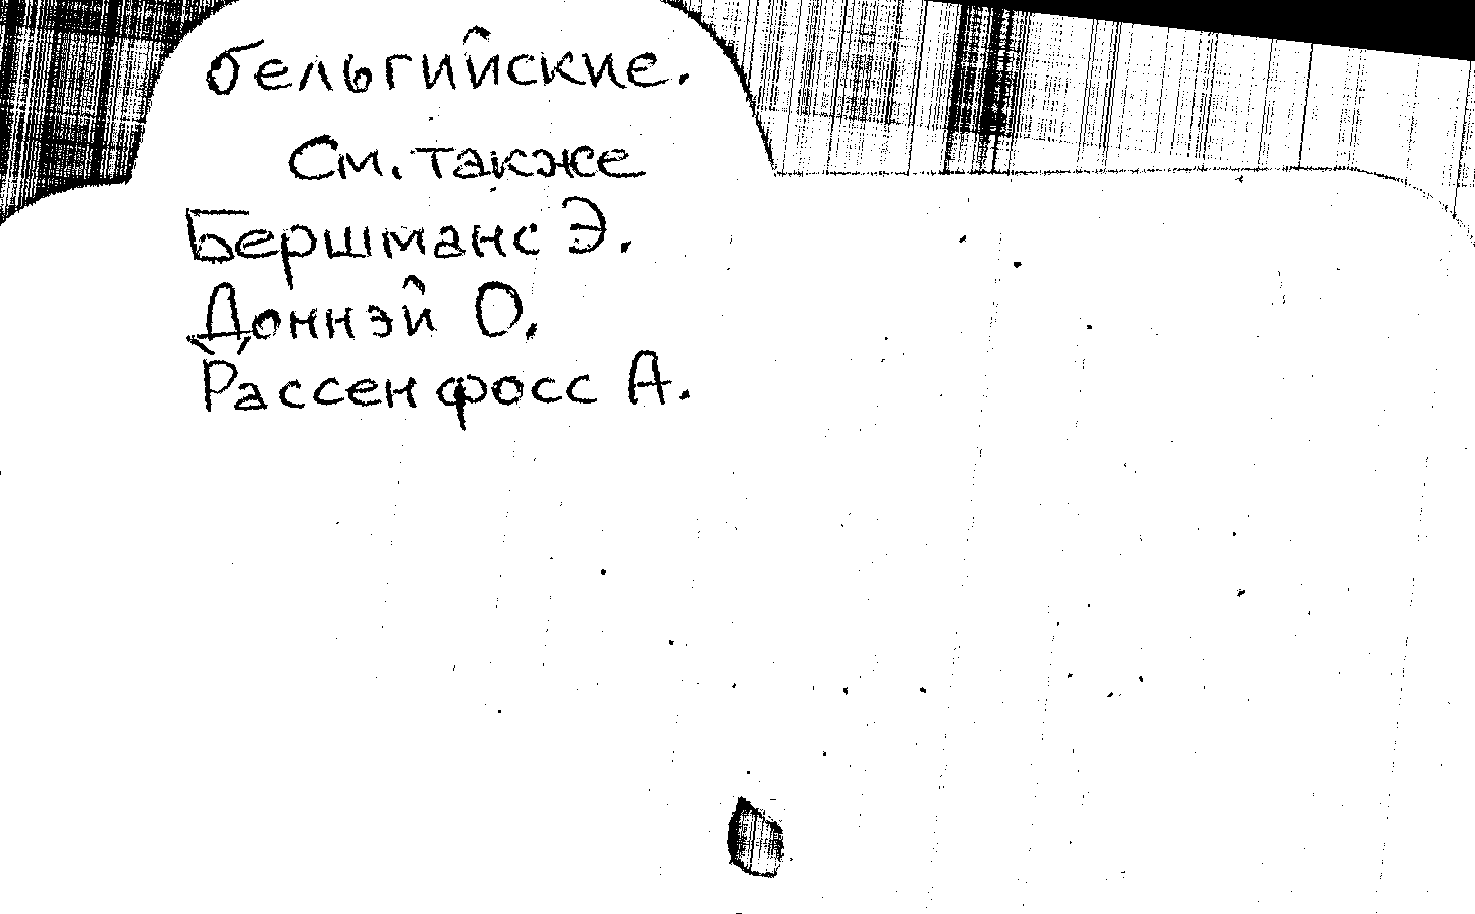 бельгийские.
См. также
Бершманс Э.
Доннэй О.
Рассенфосс А.